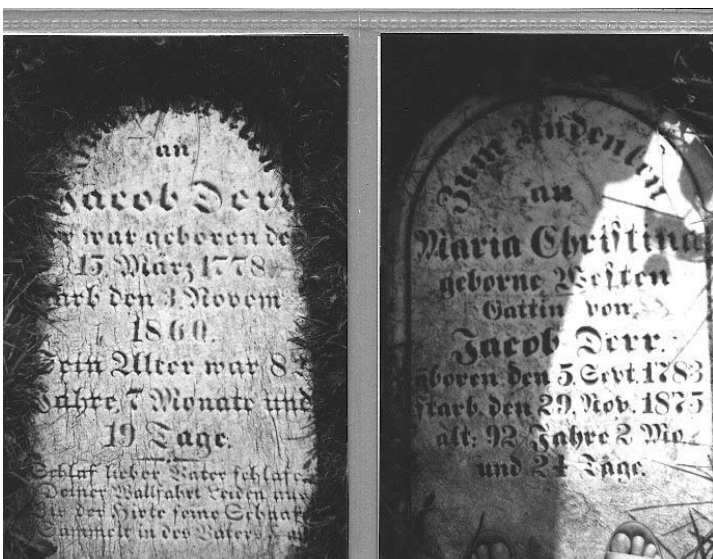 an
Jacob Derr
er war geboren de
15. März 1778
arb den 3. Novem
1860.
Sein Alter war 8
Jahre, 7 Monate und
19 Tage.
Schlaf lieber Vater schlafe
Deiner Wallfahrt Leiden aus
Bis der Hirte seine Schaafe
Sammelt in des Vaters
Zum Andenken
an
Maria Christina
geborne Westen
Gattin von
Jacob Derr.
geboren den 5. Sept. 1783
starb den 29. Nov. 1875
alt: 92 Jahre 2 Mo.
und 24 Tage.